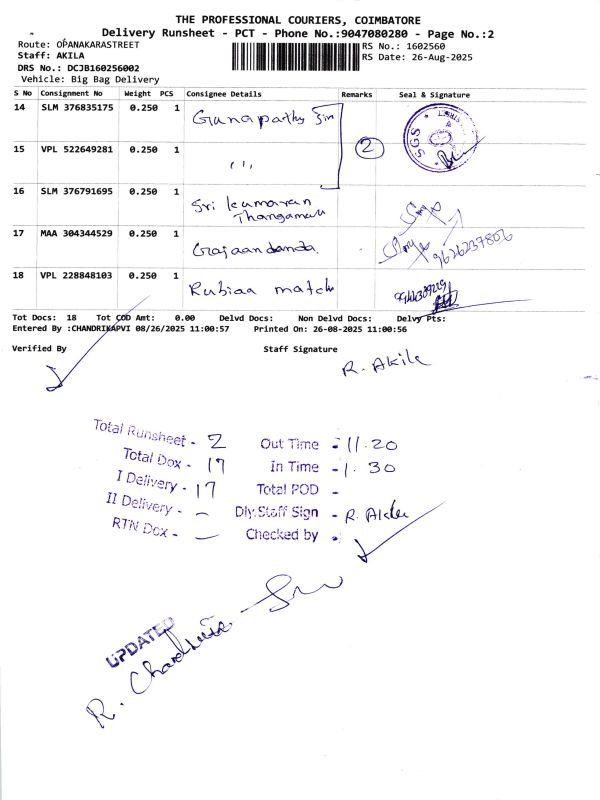 THE PROFESSIONAL COURIERS, COIMBATORE
Delivery Runsheet - PCT - Phone No.:9047080280 - Page No.:2
Route: OPANAKARASTREET
RS No.: 1602560
Staff: AKILA
RS Date: 26-Aug-2025
DRS No.: DCJB160256002
Vehicle: Big Bag Delivery
S No Consignment No Weight PCS Consignee Details Remarks Seal & Signature
14 SLM 376835175 0.250 1 Ganapathy
15 VPL 522649281 0.250 1 " 2 SGS
16 SLM 376791695 0.250 1 Sri kumaran
Thangamali
17 MAA 304344529 0.250 1 9626237806
18 VPL 228848103 0.250 1 Rubiaa match
Tot Docs: 18 Tot COD Amt: 0.00 Delvd Docs: Non Delvd Docs: Delvy Pts:
Entered By :CHANDRIKAPVI 08/26/2025 11:00:57 Printed On: 26-08-2025 11:00:56
Verified By Staff Signature
R. Akila
Total Runsheet - 2 Out Time - 11:20
Total Dox - 17 In Time - 1:30
I Delivery - 17 Total POD -
II Delivery - – Dly.Staff Sign - R. Akila
RTN Dox - – Checked by -
UPDATED